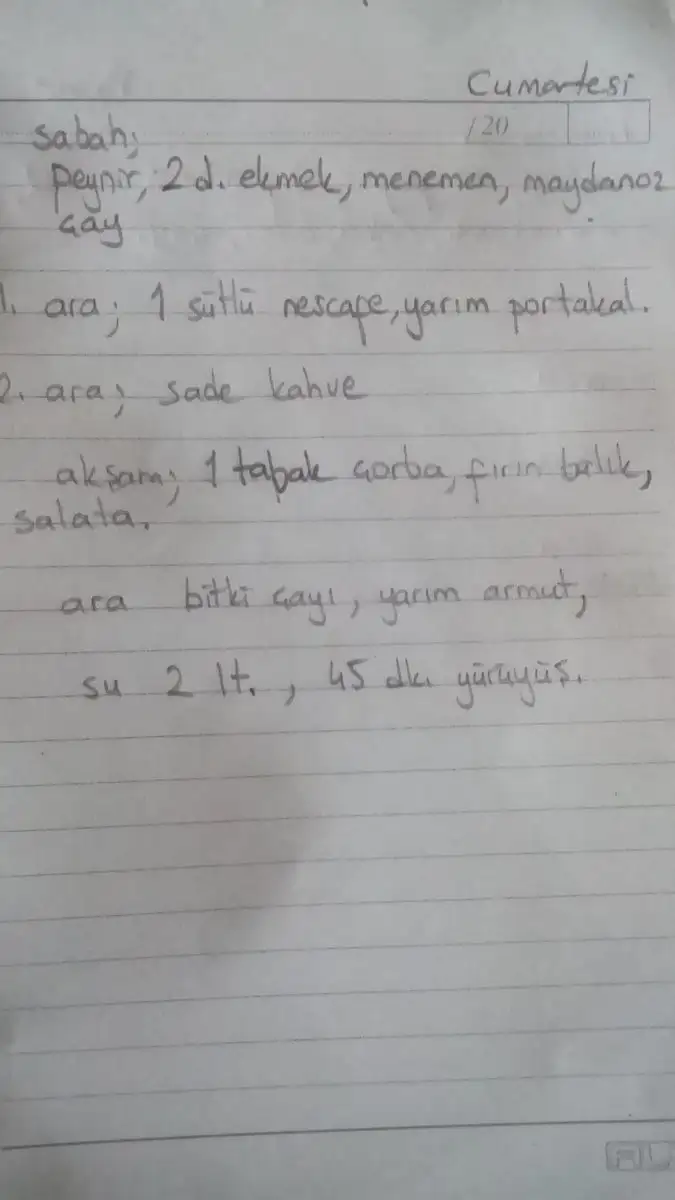 Cumartesi
/20
sabah;
peynir, 2 d. ekmek, menemen, maydanoz
çay
1. ara; 1 sütlü nescafe, yarım portakal.
2. ara; sade kahve
akşam; 1 tabak çorba, fırın balık,
salata.
ara bitki çayı, yarım armut,
su 2 lt., 45 dk. yürüyüş.